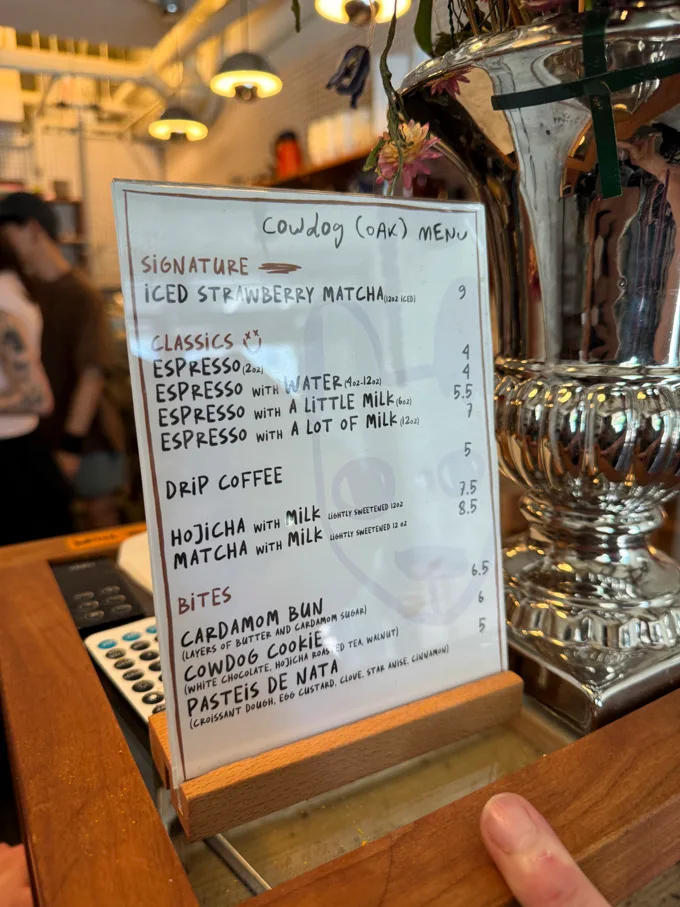 COWDOG (OAK) MENU
SIGNATURE
ICED STRAWBERRY MATCHA (12OZ ICED) 9
CLASSICS
ESPRESSO (2OZ) 4
ESPRESSO WITH WATER (4OZ-12OZ) 4
ESPRESSO WITH A LITTLE MILK (6OZ) 5.5
ESPRESSO WITH A LOT OF MILK (12OZ) 7
DRIP COFFEE 5
HOJICHA WITH MILK LIGHTLY SWEETENED 12OZ 7.5
MATCHA WITH MILK LIGHTLY SWEETENED 12 OZ 8.5
BITES
CARDAMOM BUN 6.5
(LAYERS OF BUTTER AND CARDAMOM SUGAR)
COWDOG COOKIE 6
(WHITE CHOCOLATE, HOJICHA ROASTED TEA, WALNUT)
PASTEIS DE NATA 5
(CROISSANT DOUGH, EGG CUSTARD, CLOVE, STAR ANISE, CINNAMON)